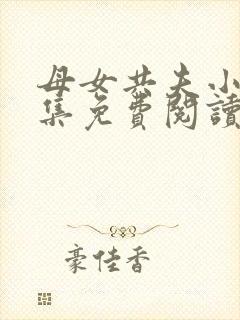 母女共夫小
集免費閱讀
豪佳香